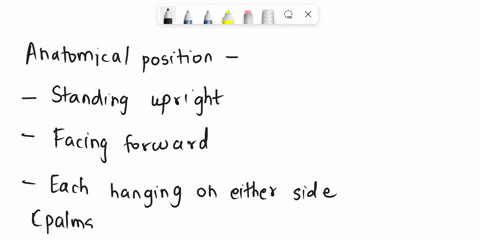 Anatomical position -
- Standing upright
- Facing forward
- Each hanging on either side
(palms